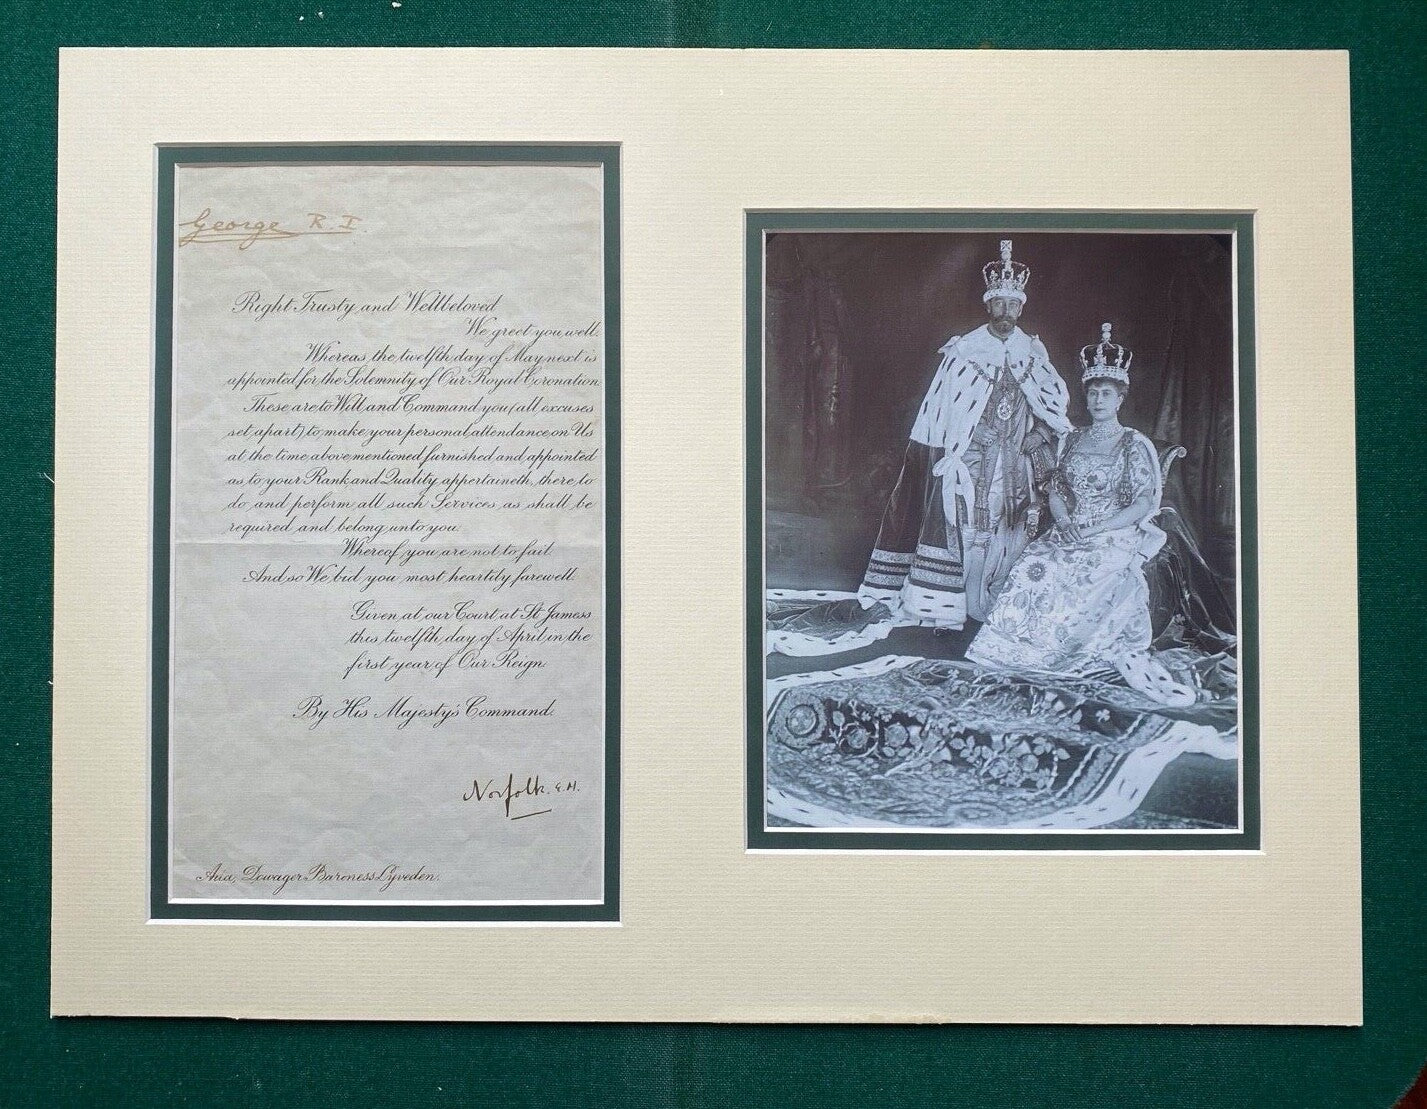 George R.I.
Right Trusty and Wellbeloved
We greet you well.
Whereas the twelfth day of May next is
appointed for the Solemnity of Our Royal Coronation.
These are to Will and Command you (all excuses
set apart) to make your personal attendance on Us
at the time above mentioned furnished and appointed
as to your Rank and Quality appertaineth, there to
do and perform all such Services as shall be
required and belong unto you.
Whereof you are not to fail.
And so We bid you most heartily farewell.
Given at our Court at St James's
this twelfth day of April in the
first year of Our Reign.
By His Majesty's Command.
Norfolk. E.M.
Dowager Baroness Lyveden.